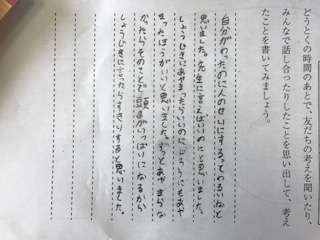 どうとくの時間のあとで、友だちの考えを聞いたり、
みんなで話し合ったりしたことを思い出して、考え
たことを書いてみましょう。
自分がわったのに人のせいにするってわるいなと
思いました。先生に言えばいいのにと思いました。
しょうじきにあやまったらいいのに
せったほうがいいと思いました。ずっとあやまらな
かったらそのことで頭がいっぱいになるから
しょうじきに言ったらすきりすると思いました。